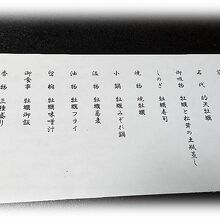 名代 的矢牡蠣
御吸物 牡蠣と松茸の土瓶蒸し
しのぎ 牡蠣寿司
焼物 焼牡蠣
小鍋 牡蠣みぞれ鍋
温物 牡蠣蕎麦
油物 牡蠣フライ
留椀 牡蠣味噌汁
御食事 牡蠣御飯
香物 三種盛り